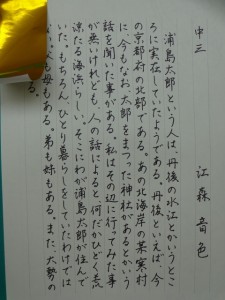 中三　江森音色
浦島太郎という人は、丹後の水江とかいうとこ
ろに実在していたようである。丹後といえば、今
の京都府の北部である。あの北海岸の某寒村
に、今もなお、太郎をまつった神社があるとかいう
話を聞いた事がある。私はその辺に行ってみた事
が無いけれども、人の話によると、何だかひどく荒
涼たる海浜らしい。そこにわが浦島太郎が住んで
いた。もちろん、ひとり暮らしをしていたわけでは
ない。父も母もある。弟も妹もある。また、大勢の
る。